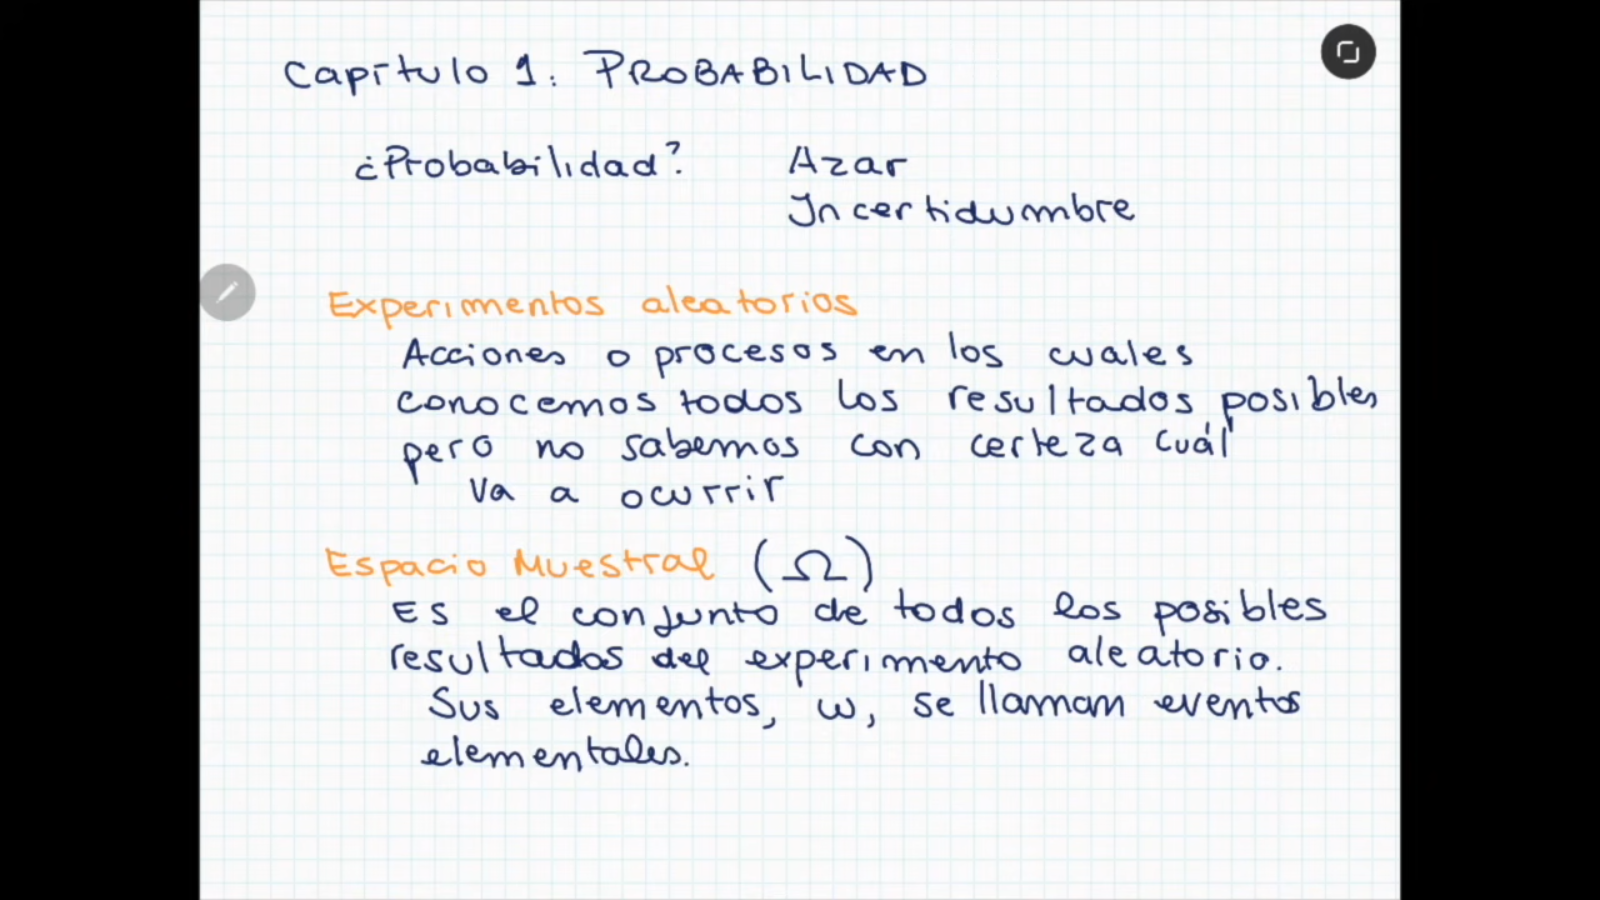 Capítulo 1: PROBABILIDAD
¿Probabilidad? Azar
Incertidumbre
Experimentos aleatorios
Acciones o procesos en los cuales
conocemos todos los resultados posibles
pero no sabemos con certeza cuál
va a ocurrir
Espacio Muestral (Ω)
Es el conjunto de todos los posibles
resultados del experimento aleatorio.
Sus elementos, ω, se llaman eventos
elementales.